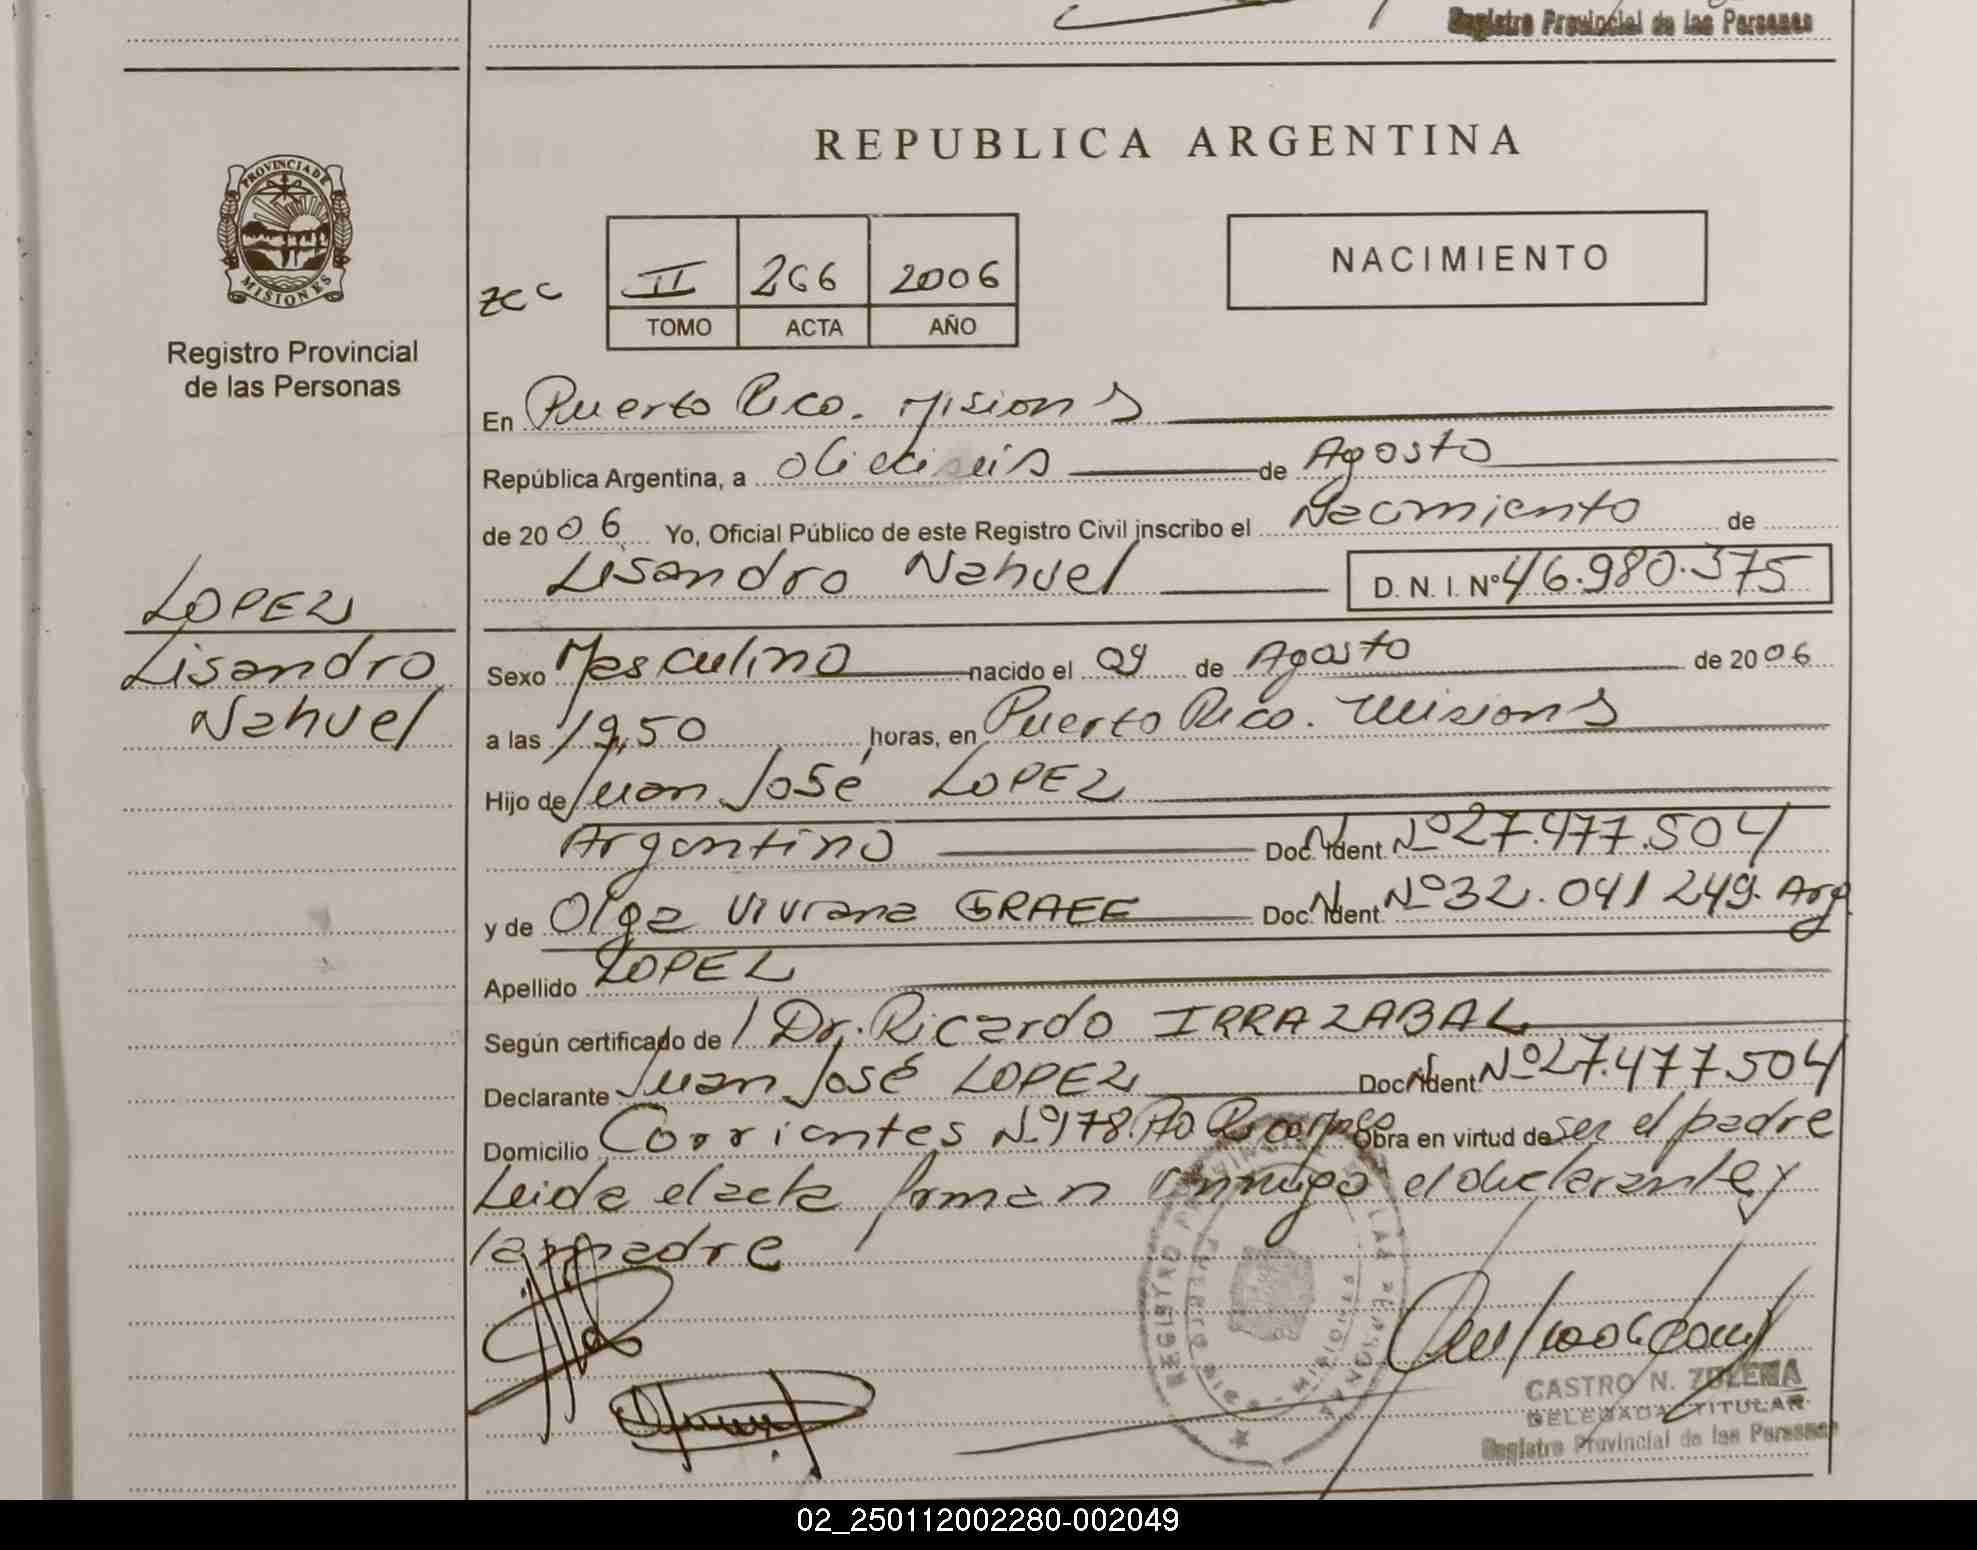 Registro Provincial de las Personas
REPUBLICA ARGENTINA
PROVINCIA DE
MISIONES
Registro Provincial
de las Personas
zcc
II 266 2006
TOMO ACTA AÑO
NACIMIENTO
En Puerto Rico. Misiones
República Argentina, a dieciseis de Agosto
de 2006 Yo, Oficial Público de este Registro Civil inscribo el Nacimiento de
Lisandro Nahuel D. N. I. Nº 46.980.375
LOPEZ
Lisandro
Nahuel
Sexo Masculino nacido el 09 de Agosto de 2006
a las 19,50 horas, en Puerto Rico. Misiones
Hijo de Juan José LOPEZ
Argentino Doc. Ident. Nº 27.477.504
y de Olga Viviana GRAEF Doc. Ident. Nº 32.041 249. Arg.
Apellido LOPEZ
Según certificado de Dr. Ricardo IRRAZABAL
Declarante Juan José LOPEZ Doc. Ident. Nº 27.477.504
Domicilio Corrientes Nº 178. Pto Rico Obra en virtud de ser el padre
Leida el acta firman conmigo el declarante y
la madre
REGISTRO PROVINCIAL DE LAS PERSONAS
PUERTO RICO - MISIONES
CASTRO N. ZULEMA
DELEGADA TITULAR
Registro Provincial de las Personas
02_250112002280-002049